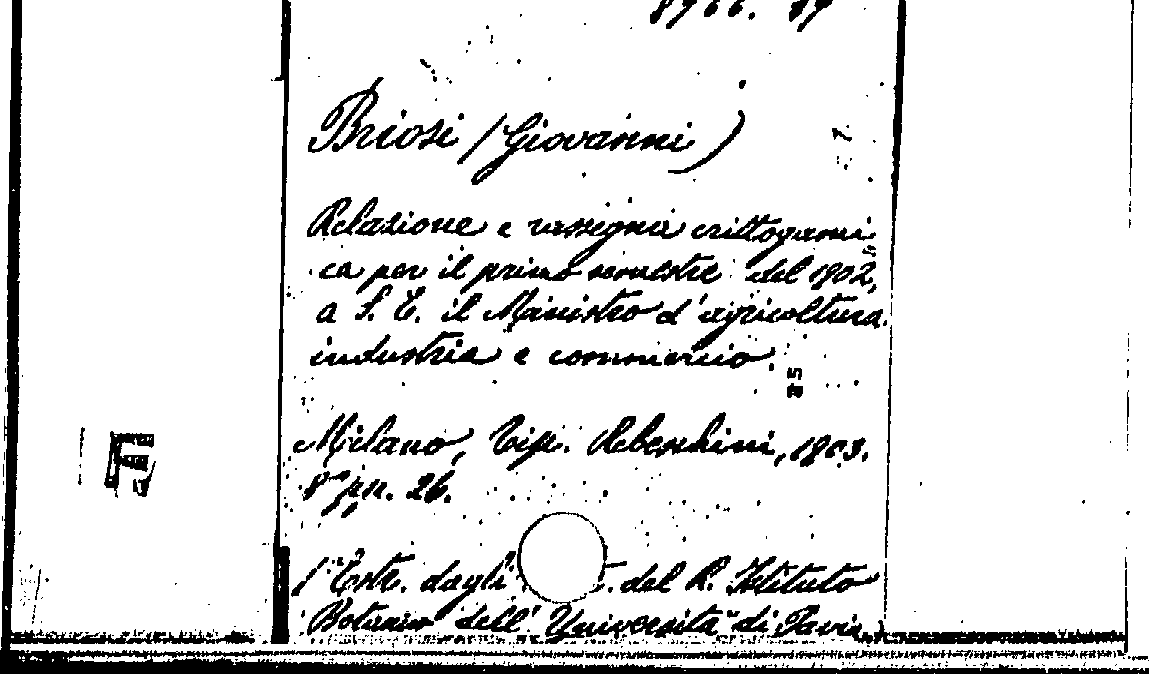 Briosi (Giovanni)
Relazione e rassegna crittogami
ca per il primo semestre del 1902,
a S. E. il Ministro d'agricoltura
industria e commercio.
25
Milano, Tip. Rebeschini, 1903.
8° pp. 26.
(Estr. dagli . del R. Istituto
Botanico dell' Università di Pavia)